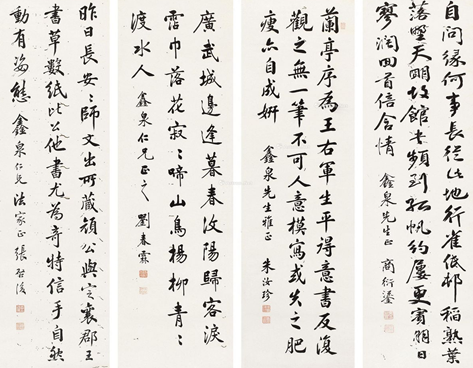 自問緣何事長從此地行雀低邨稻熟葉
落埜天明故館書頻到孤帆約屢更賓朋日
寥濶回首倍含情 鑫泉先生正 商衍鎏
蘭亭序為王右軍生平得意書反復
觀之無一筆不可人意模寫或失之肥
瘦亦自成妍 鑫泉先生雅正 朱汝珍
廣武城邊逢暮春汶陽歸客淚
霑巾落花寂〻啼山鳥楊柳青〻
渡水人 鑫泉仁兄正之 劉春霖
昨日長安〻師文出所藏顏公與定襄郡王
書草數紙比公他書尤為奇特信手自然
動有姿態 鑫泉仁兄法家正 張啓後